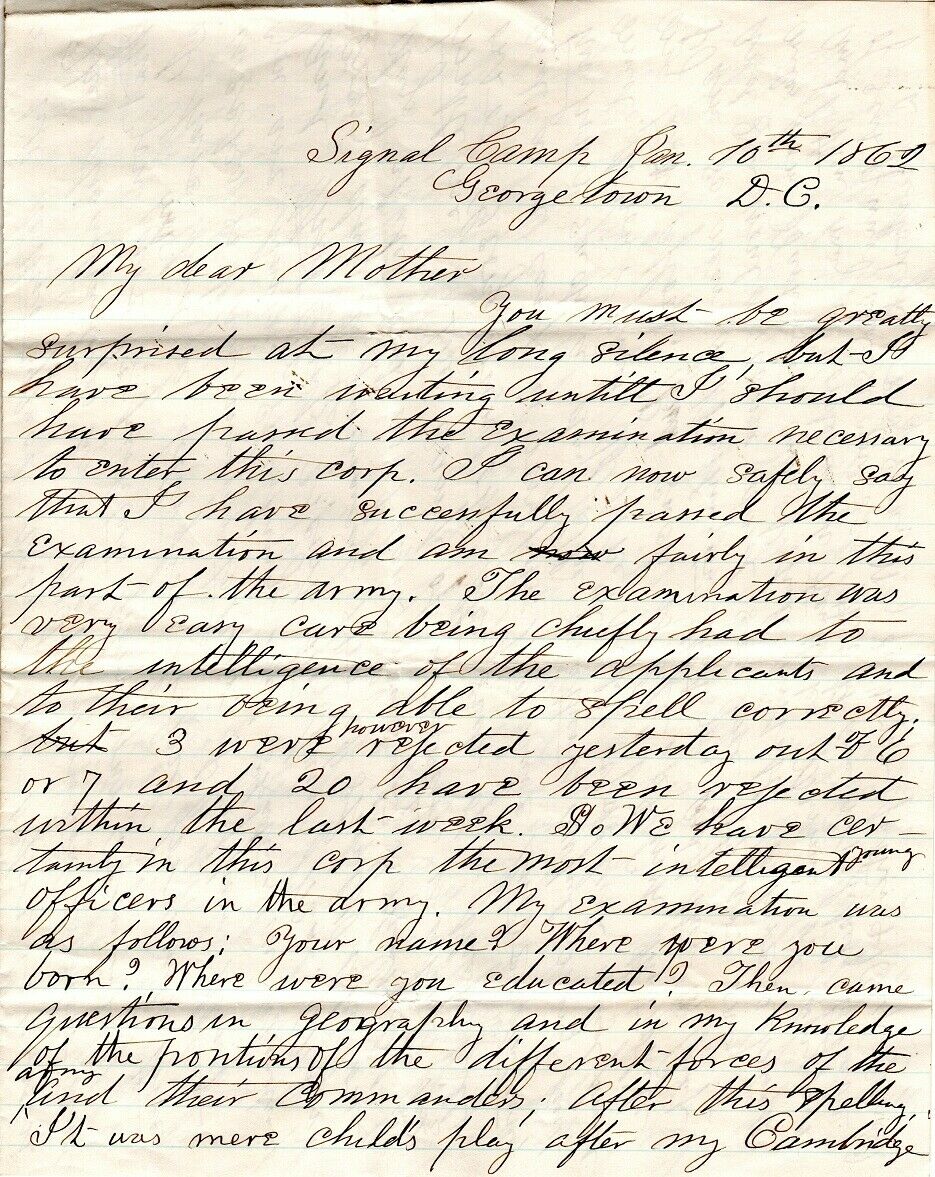 Signal Camp Jan. 10th 1862
Georgetown D.C.
My dear Mother
You must be greatly
surprised at my long silence, but I
have been waiting untill I should
have passed the examination necessary
to enter this corp. I can now safely say
that I have successfully passed the
examination and am now fairly in this
part of the army. The examination was
very easy care being chiefly had to
the intelligence of the applicants and
to their being able to spell correctly.
but 3 were however rejected yesterday out of 6
or 7 and 20 have been rejected
within the last week. We have cer-
tainly in this corp the most intelligent young
officers in the army. My examination was
as follows; Your name? Where were you
born? Where were you educated? Then came
questions in geography and in my knowledge
of the positions of the different forces of the
army and their commanders; after this spelling,
It was mere child's play after my Cambridge